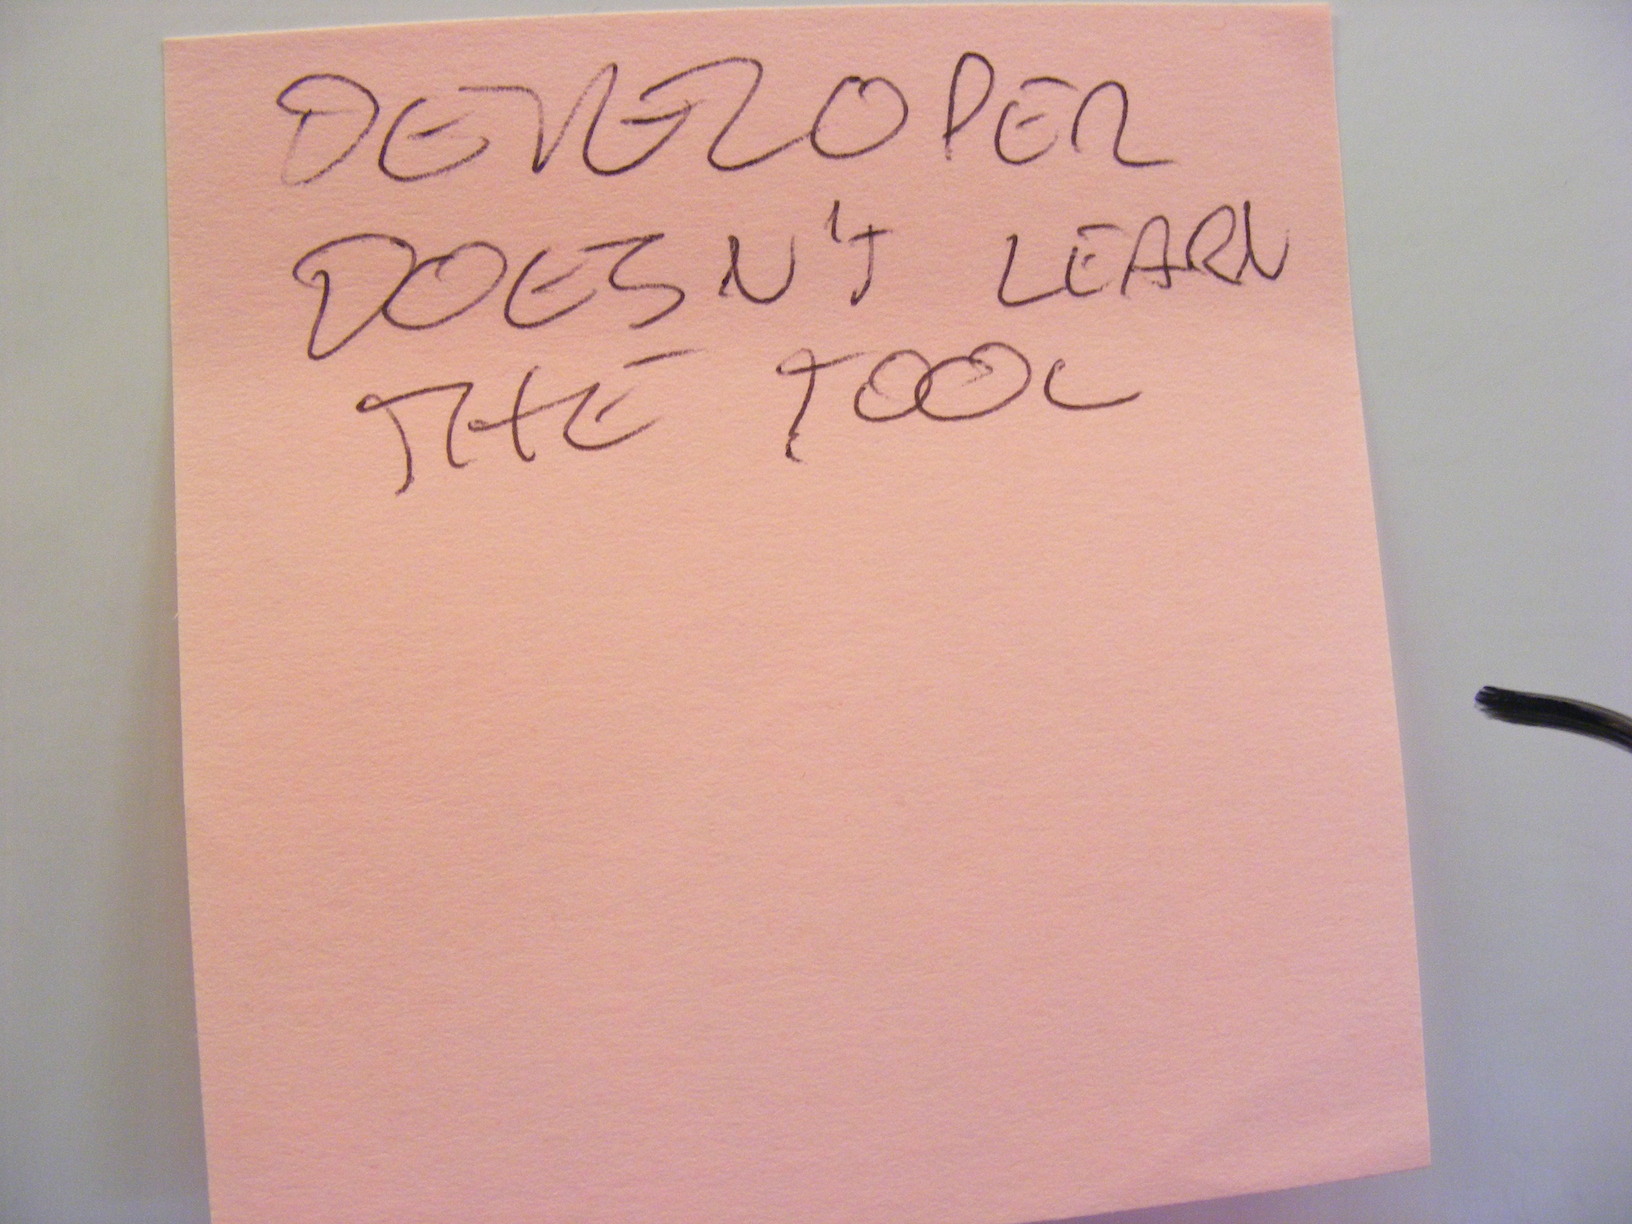 DEVELOPER
DOESN'T LEARN
THE TOOL